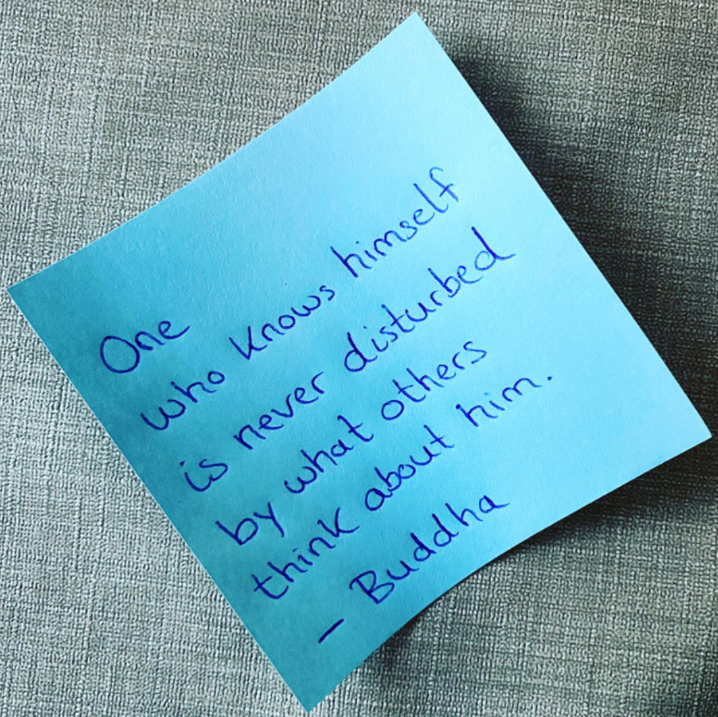 One
who knows himself
is never disturbed
by what others
think about him.
- Buddha